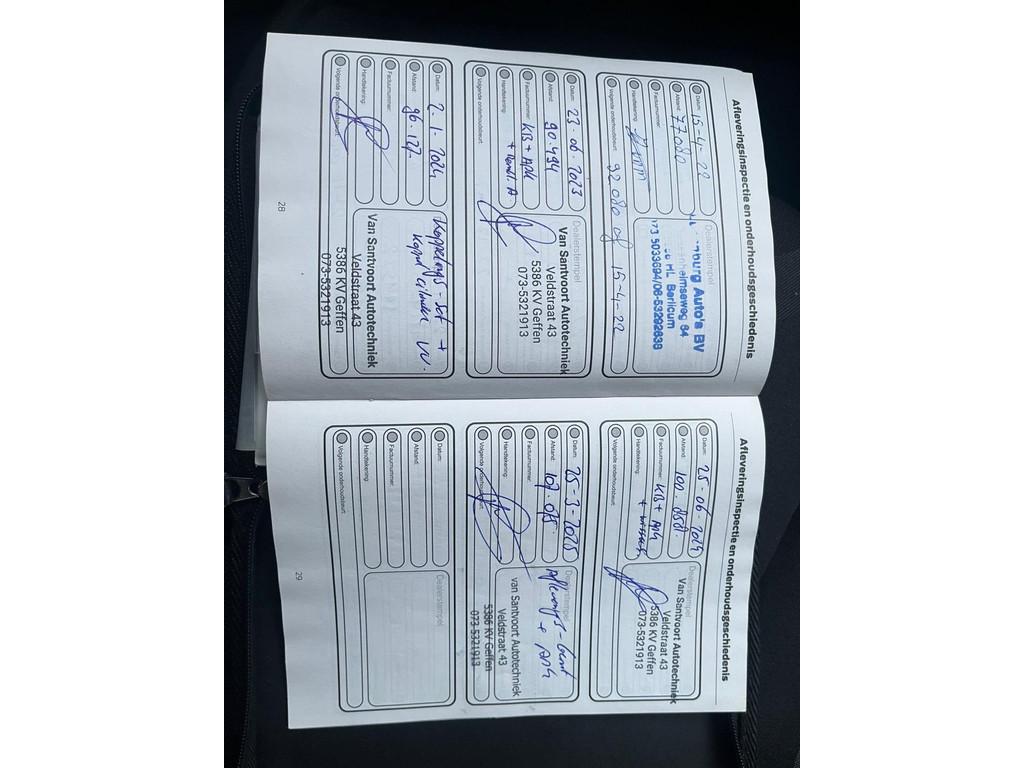 Afleveringsinspectie en onderhoudsgeschiedenis
Datum: 15-4-22
Afstand: 77080
Factuurnummer:
Handtekening:
Volgende onderhoudsbeurt: 92080 of 15-4-22
Dealerstempel
burg Auto's BV
heimseweg 64
HL Berlicum
073 5033694/06-53292838
Datum: 23.06.2023
Afstand: 90.494
Factuurnummer: KB + APK
Handtekening:
Volgende onderhoudsbeurt:
Dealerstempel
Van Santvoort Autotechniek
Veldstraat 43
5386 KV Geffen
073-5321913
Datum: 2.1.2024
Afstand: 96.127.
Factuurnummer:
Handtekening:
Volgende onderhoudsbeurt:
Koppelings-set +
Van Santvoort Autotechniek
Veldstraat 43
5386 KV Geffen
073-5321913
28
Afleveringsinspectie en onderhoudsgeschiedenis
Datum: 25-06-2024
Afstand:
Factuurnummer: KB + APK
Handtekening: + wissers
Volgende onderhoudsbeurt:
Dealerstempel
Van Santvoort Autotechniek
Veldstraat 43
5386 KV Geffen
073-5321913
Datum: 25-3-2025
Afstand: 107.075.
Factuurnummer:
Handtekening:
Volgende onderhoudsbeurt:
Dealerstempel
Afleverings-beurt
+ APK
van Santvoort Autotechniek
Veldstraat 43
5386 KV Geffen
073-5321913
Datum:
Afstand:
Factuurnummer:
Handtekening:
Volgende onderhoudsbeurt:
Dealerstempel
29